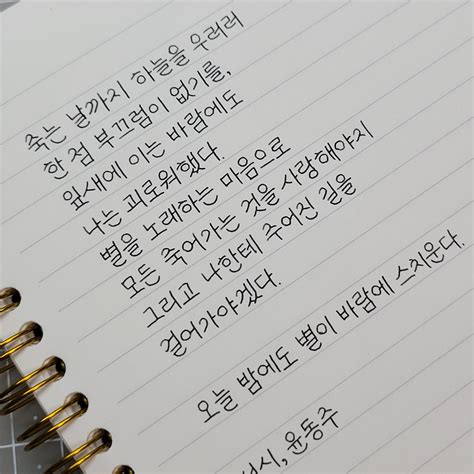 죽는 날까지 하늘을 우러러
한 점 부끄럼이 없기를,
잎새에 이는 바람에도
나는 괴로워했다.
별을 노래하는 마음으로
모든 죽어가는 것을 사랑해야지
그리고 나한테 주어진 길을
걸어가야겠다.
오늘 밤에도 별이 바람에 스치운다.
서시, 윤동주